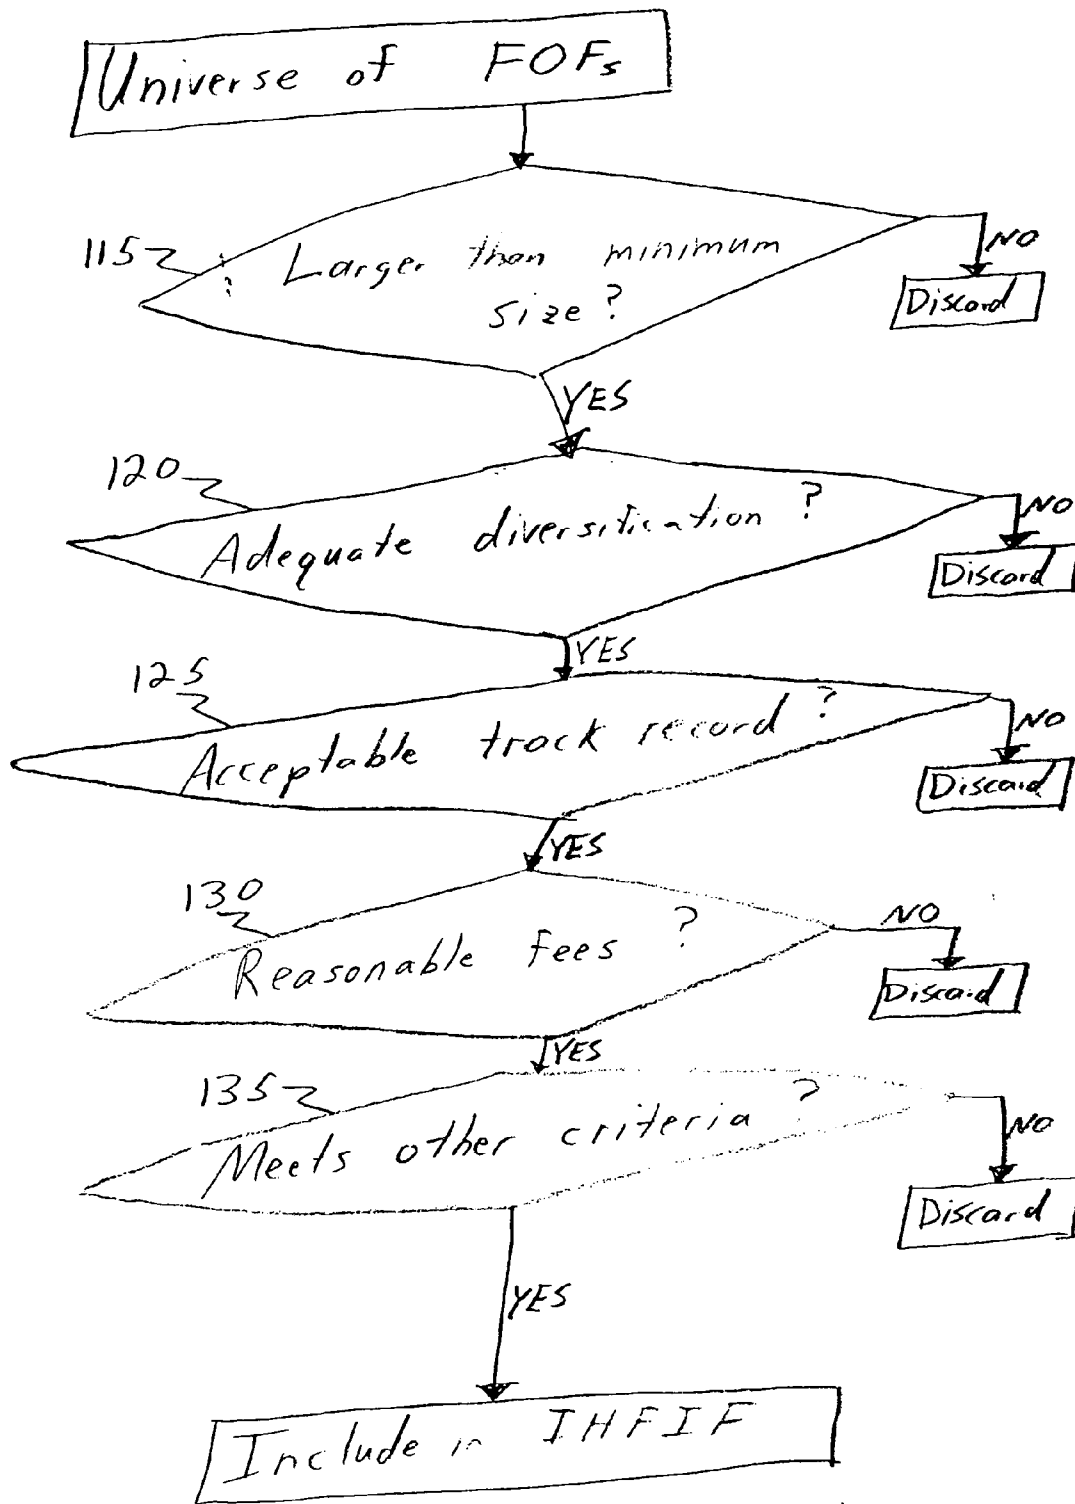 Universe of FOFs
115
Larger than minimum
size?
NO
Discard
YES
120
Adequate diversification?
NO
Discard
YES
125
Acceptable track record?
NO
Discard
YES
130
Reasonable fees?
NO
Discard
YES
135
Meets other criteria?
NO
Discard
YES
Include in IHFIF